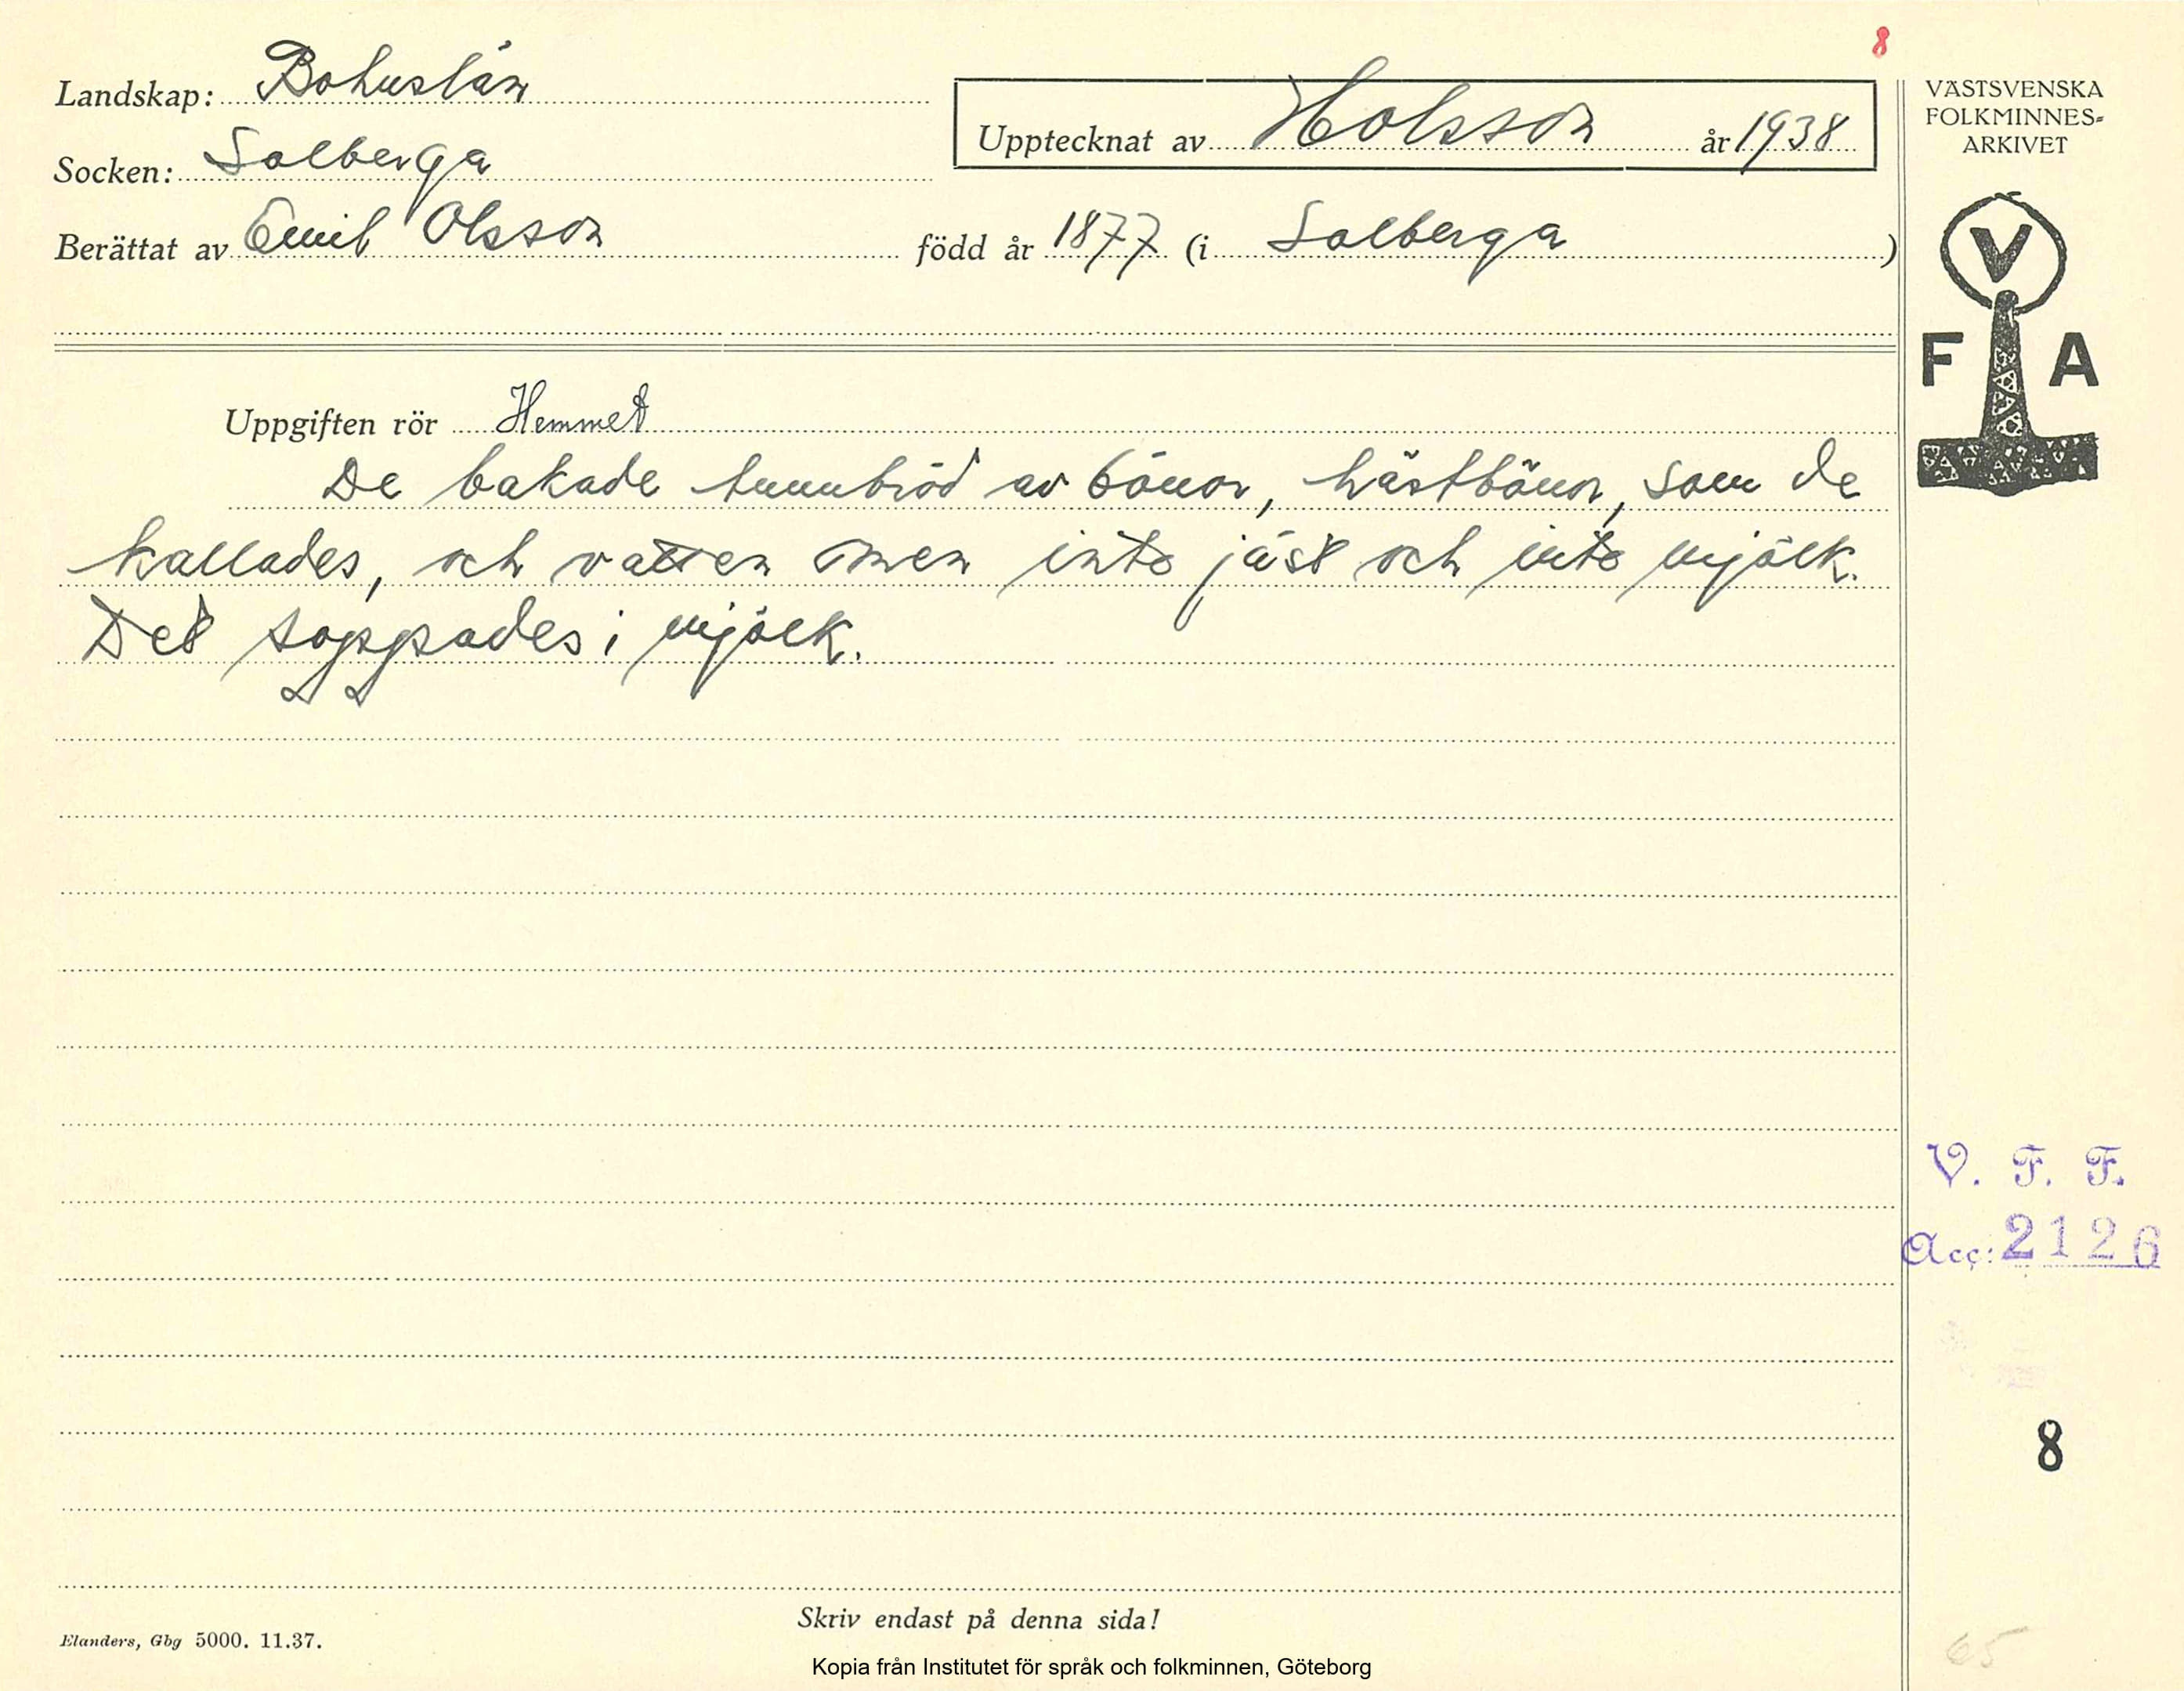 8
Landskap: Bohuslän
Socken: Solberga
Berättat av Emil Olsson född år 1877 (i Solberga)
Upptecknat av Holsson år 1938
VÄSTSVENSKA
FOLKMINNES-
ARKIVET
V
F A
Uppgiften rör Hemmet
De bakade tunnbröd av bönor, hästbönor, som de
kallades, och vatten men inte jäst och inte mjölk.
Det soppades i mjölk.
V. F. F.
Acc: 2126
8
Skriv endast på denna sida!
Elanders, Gbg 5000. 11.37.
65
Kopia från Institutet för språk och folkminnen, Göteborg